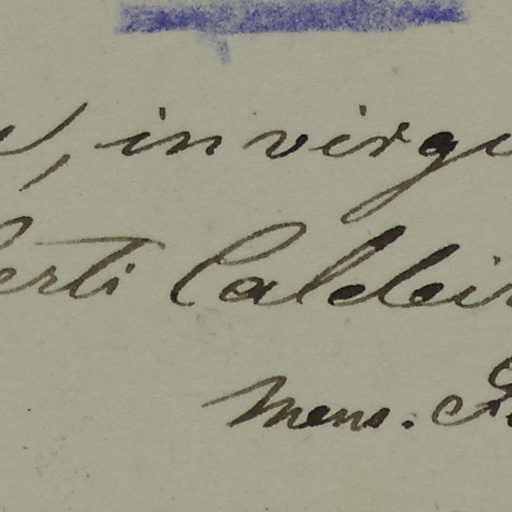 , in virgu
erti Caldeir
Mens.